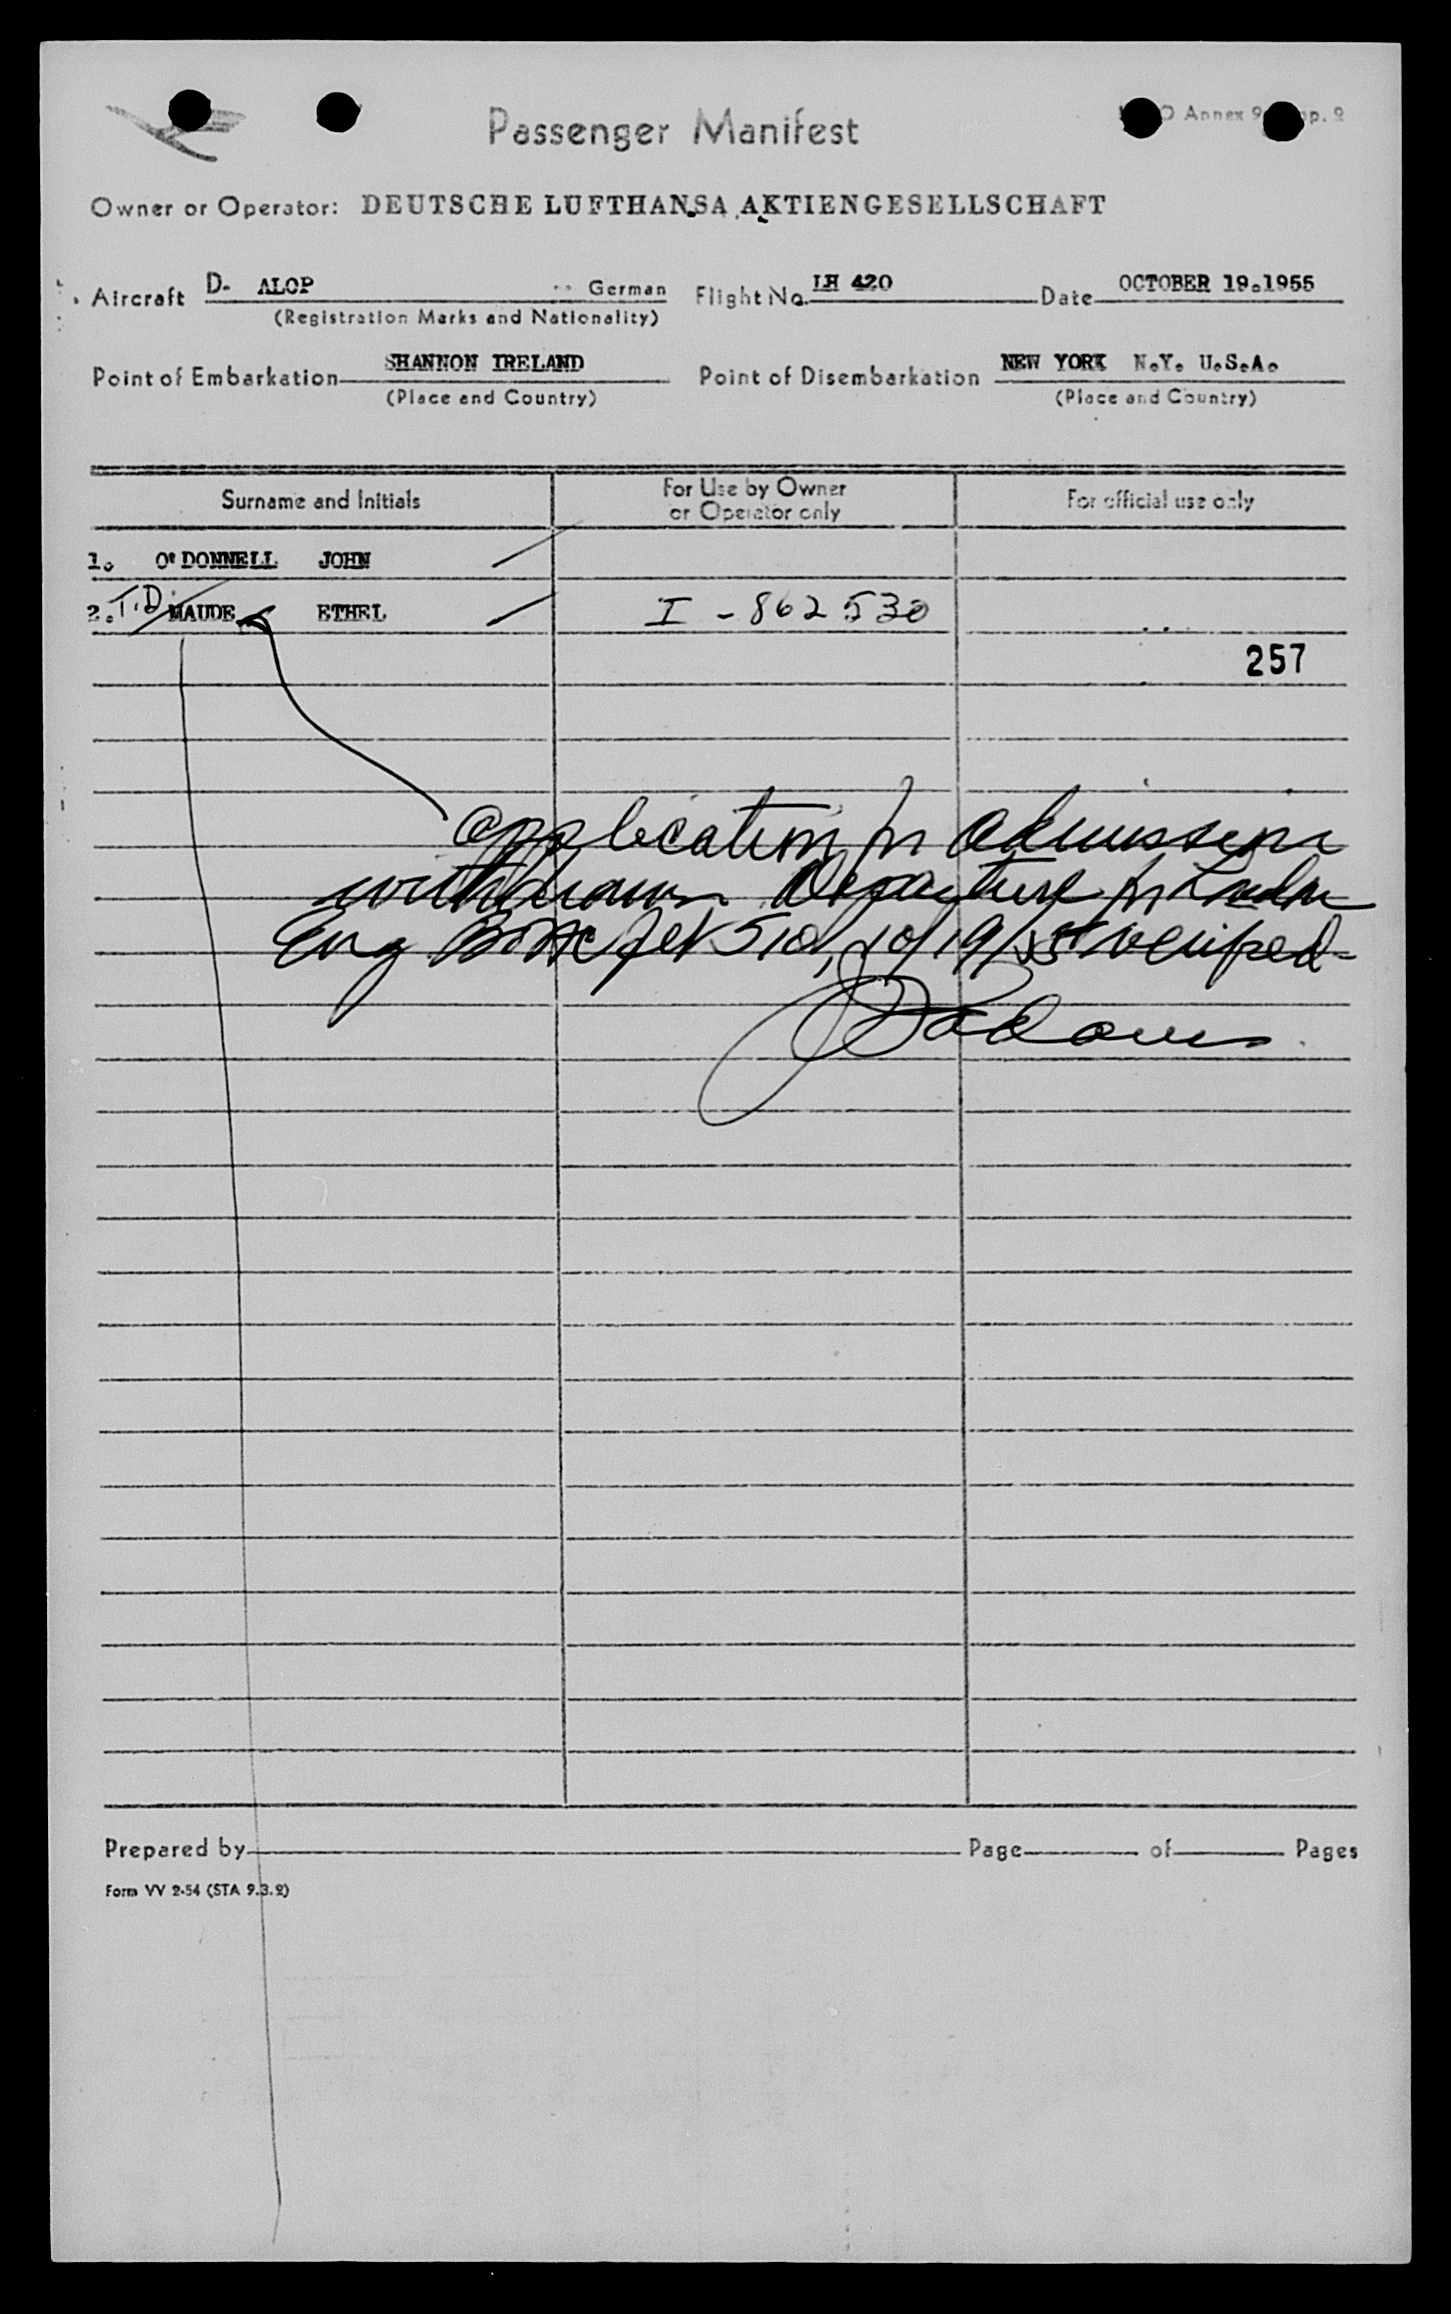 Passenger Manifest
Annex 9
Owner or Operator: DEUTSCHE LUFTHANSA AKTIENGESELLSCHAFT
Aircraft D- ALOP German Flight No. LH 420 Date OCTOBER 19.1955
(Registration Marks and Nationality)
Point of Embarkation SHANNON IRELAND Point of Disembarkation NEW YORK N.Y. U.S.A.
(Place and Country) (Place and Country)
Surname and Initials For Use by Owner or Operator only For official use only
1. O'DONNELL JOHN
2. T.D. MAUDE ETHEL I - 862530
257
application for admission
withdrawn Departure for London
Eng BOAC flt 510, 10/19/55 verified-
Prepared by Page of Pages
Form VV 2-54 (STA 9.3.2)